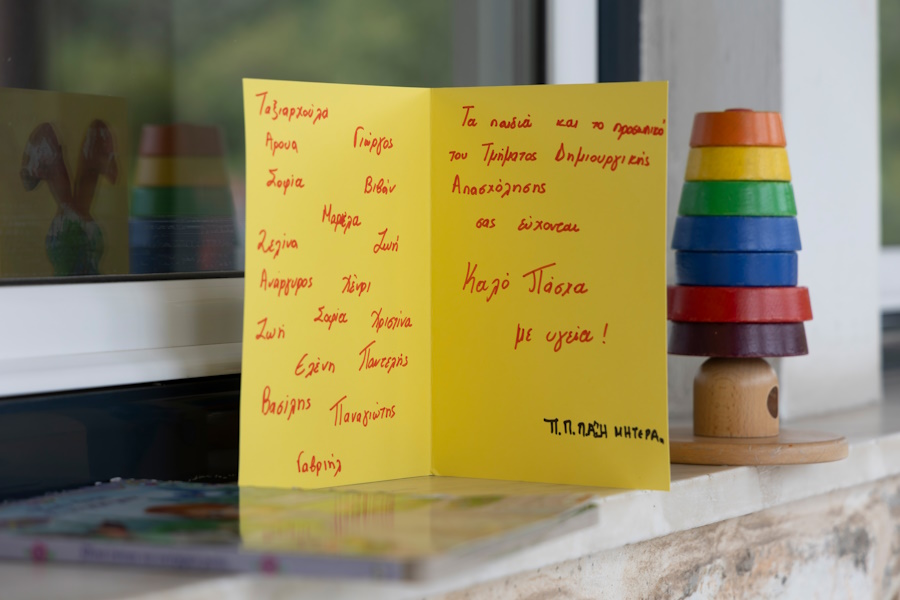 Ταξιαρχούλα
Άρουα Γιώργος
Σοφία Βιβάν
Μαρέλα
Σελίνα Ζωή
Ανάργυρος Χένρι
Ζωή Σοφία Χριστίνα
Ελένη Παντελής
Βασίλης Παναγιώτης
Γαβριήλ
Τα παιδιά και το προσωπικό
του Τμήματος Δημιουργικής
Απασχόλησης
σας εύχονται
Καλό Πάσχα
με υγεία!
Π.Π. ΜΗΤΕΡΑ.